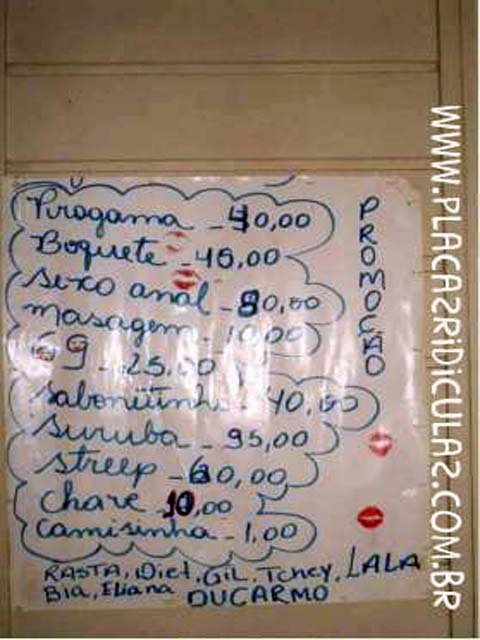 Pirogama - 40,00
Boquete - 45,00
Sexo anal - 80,00
masagem - 10,00
69 - 25,00
Sabonitinho - 40,00
Suruba - 95,00
Streep - 60,00
Chave 10,00
Camisinha - 1,00
PROMOCÃO
RASTA, Diet, GiL, Tchey, LALA
Bia, Eliana DUCARMO
WWW.PLACAZRIDICULAZ.COM.BR